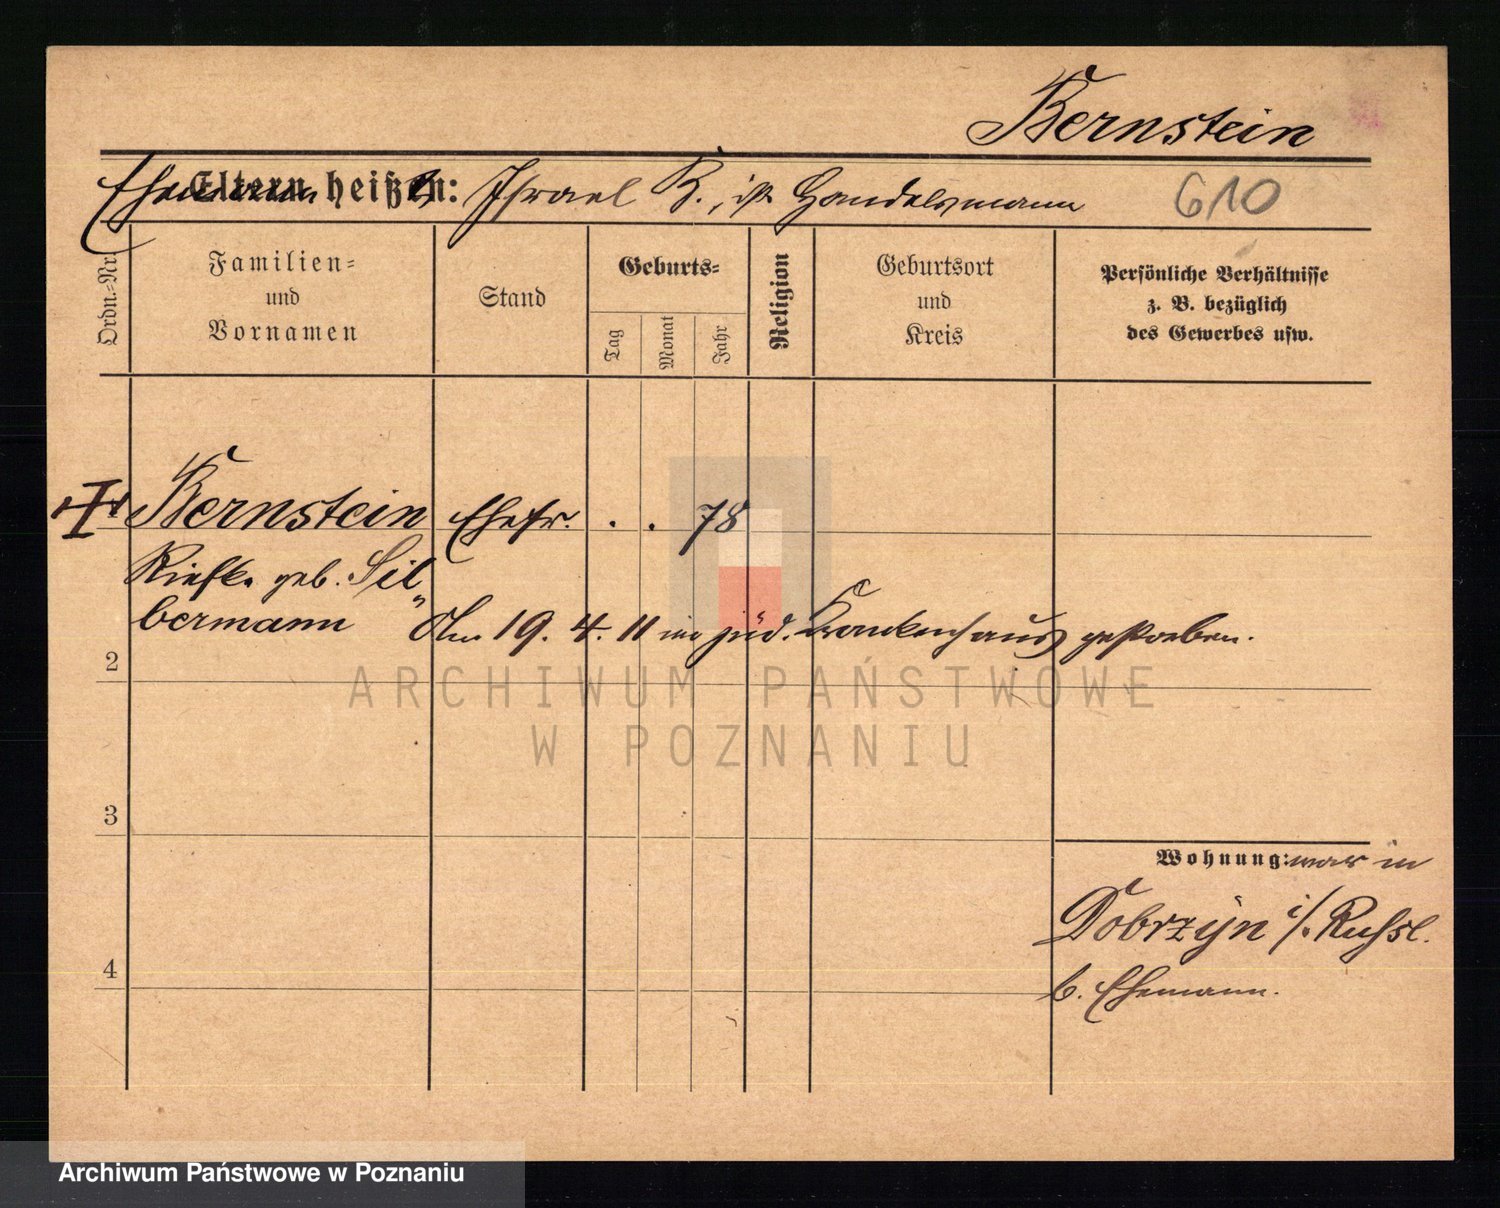 Bernstein
Ehemann heißt: Israel B., ist Handelsmann 610
Eltern heißen:
Ordn.=Nr.
Familien=
und
Vornamen
Stand
Geburts=
Tag
Monat
Jahr
Religion
Geburtsort
und
Kreis
Persönliche Verhältnisse
z. B. bezüglich
des Gewerbes usw.
Bernstein Ehefr. . . 78
Riefke geb. Sil„
bermann Am 19. 4. 11 im jüd. Krankenhause gestorben.
2
ARCHIWUM PAŃSTWOWE
W POZNANIU
3
Wohnung: war in
Dobrzyn i/. Russl.
4
b. Ehemann.
Archiwum Państwowe w Poznaniu